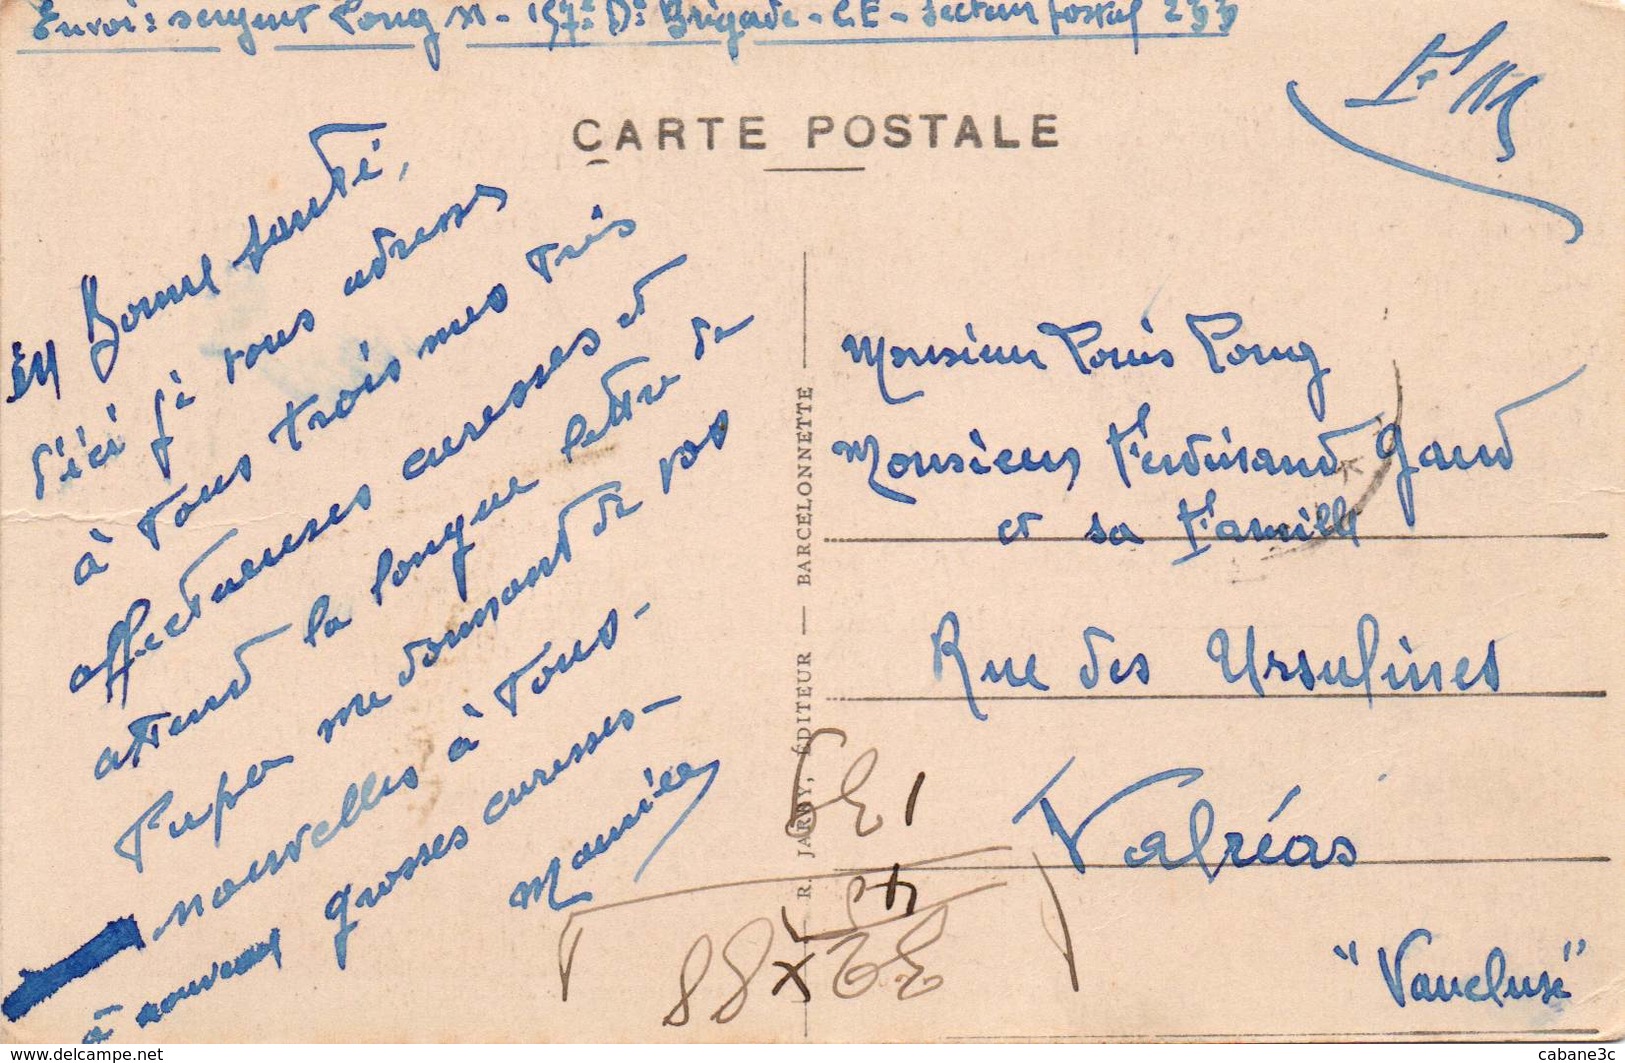 Envoi: sergent Long M - 157e Di Brigade - C.E - Secteur postal 233
F.M
CARTE POSTALE
En Bonne santé,
d'ici je vous adresse
à tous trois mes très
affectueuses caresses et
attend la longue lettre de
Papa me donnant de vos
nouvelles à tous -
à nouveau grosses caresses -
Maurice
R. JARBY, ÉDITEUR — BARCELONNETTE
Monsieur Louis Long
Monsieur Ferdinand Gand
et sa Famille
Rue des Ursulines
Valréas
"Vaucluse"
delcampe.net
cabane3c